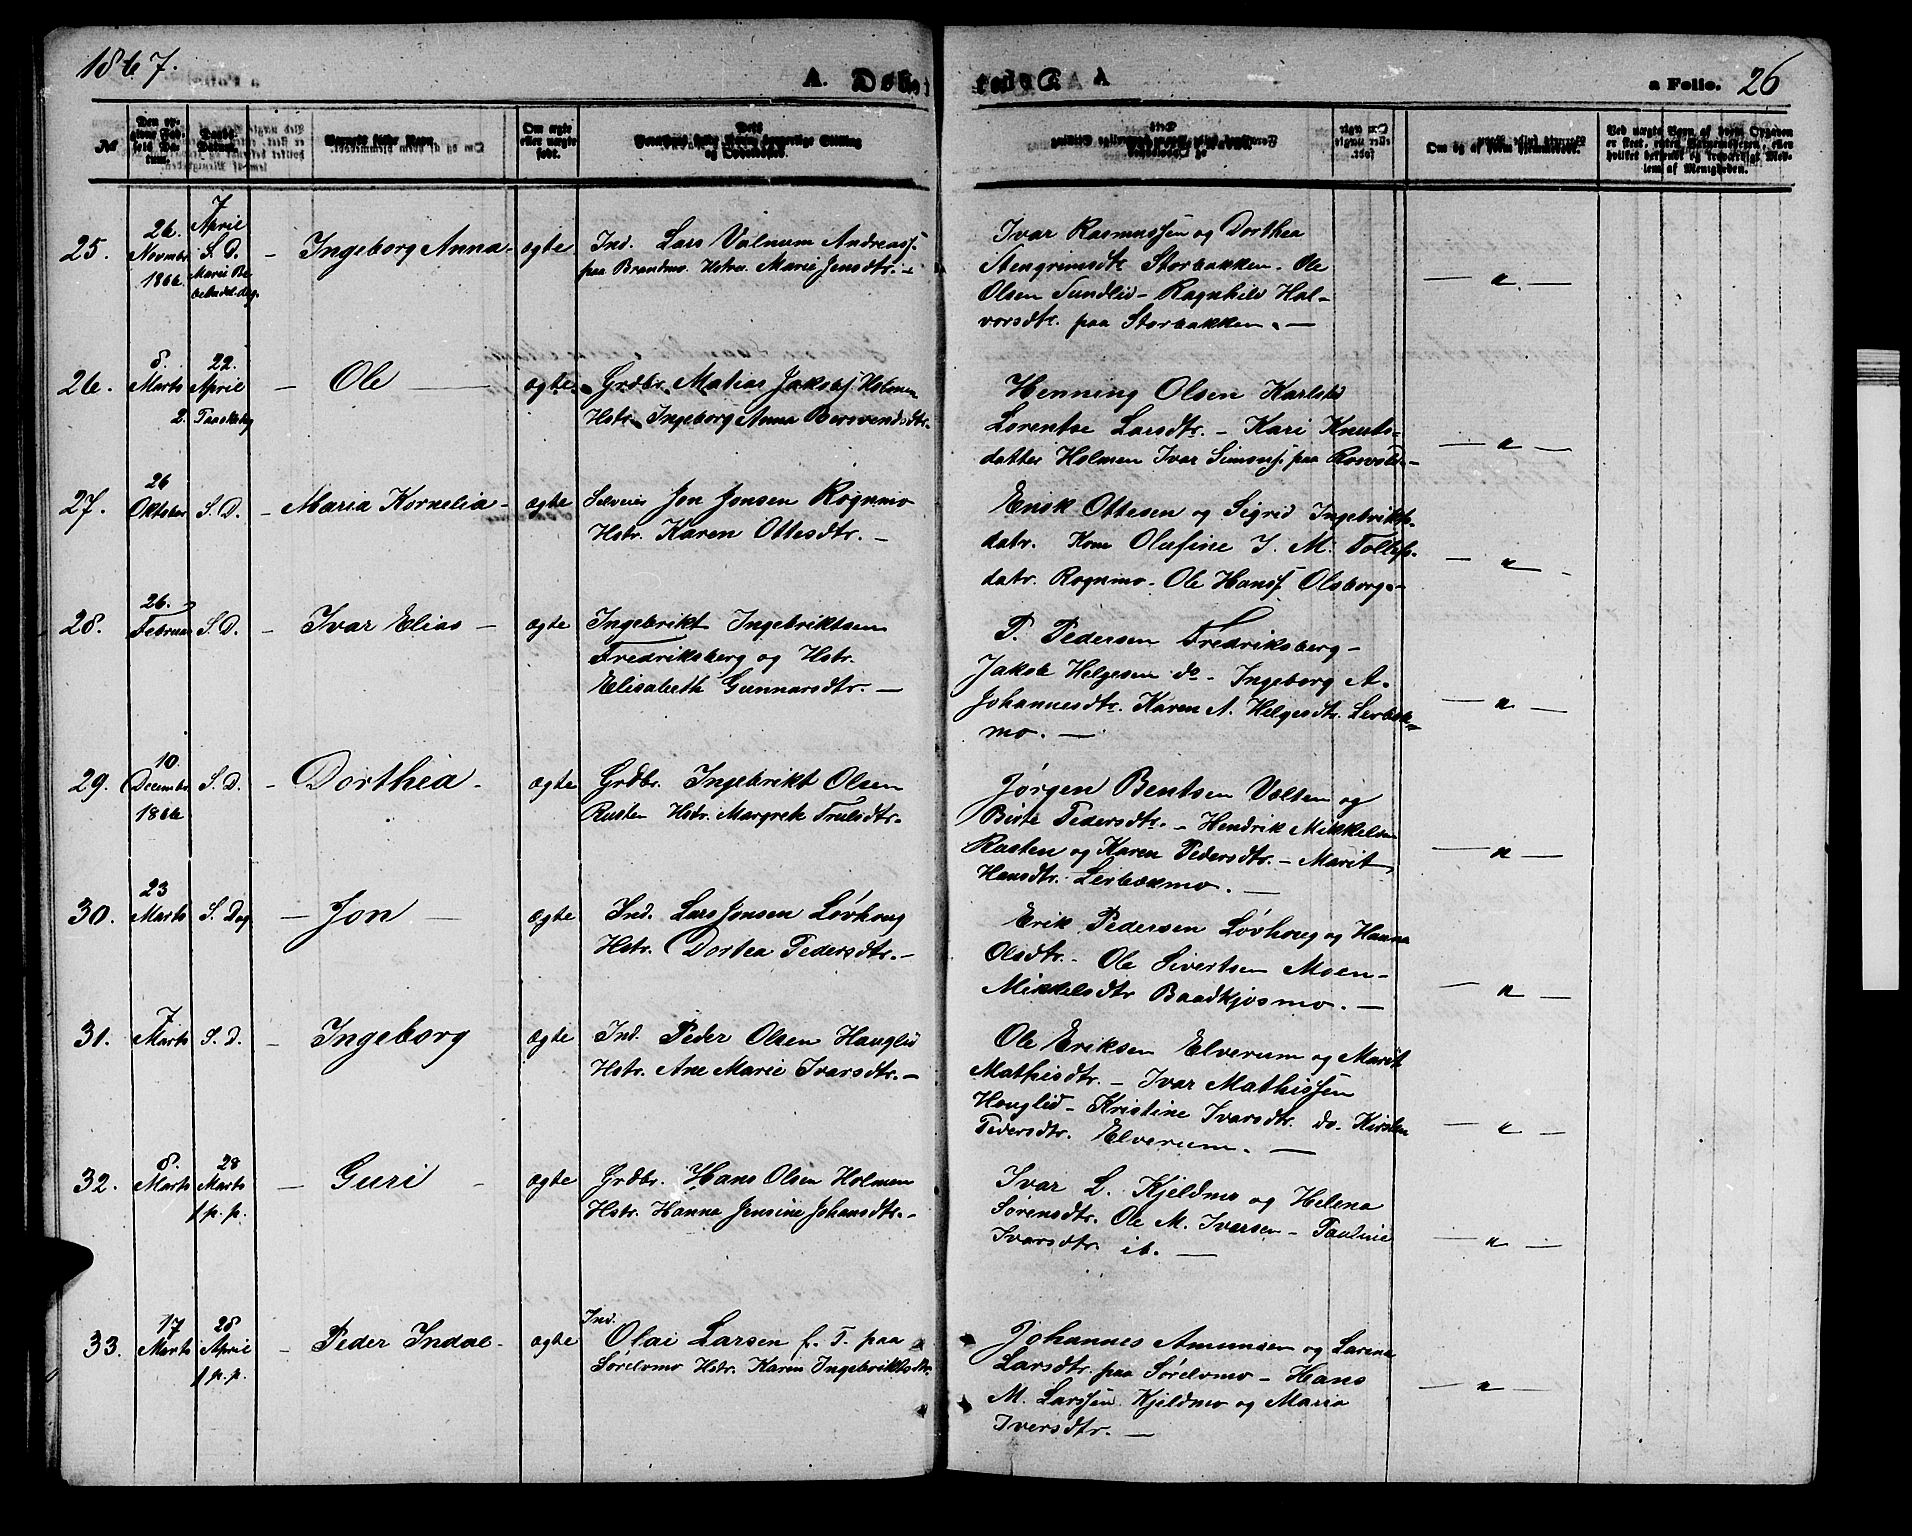 1867.
A. Døbt
a Folio. 26
№
Barnets fulde Navn.
Om ægte eller uægte født.
25. 26. Novmbr. 1866 7 April S. D. Marie Be budel. dag. - Ingeborg Anna - ægte
Ind. Lars Valnum Andreass.
paa Brandmo. Hstru. Marie Jensdtr. -
Ivar Rasmussen og Dorthea
Stengrimsdtr. Storbakken. Ole
Olsen Sundlid - Ragnhild Hal-
vorsdtr. paa Storbakken. -
26. 8. Marts 22. April 2. Paaskedag - Ole - ægte
Grdbr. Matias Jakobs. Holmen
Hstr. Ingeborg Anna Bersvendsdtr.
Henning Olsen Karlstd
Lorentse Larsdtr. - Kari Knuts-
datter Holmen Ivar Simons. paa Rosvold -
27. 26 Oktober S. D. - Maria Kornelia - ægte
Selveier Jon Jonsen Rognmo
Hstr. Karen Ottesdtr. -
Erik Ottesen og Sigrid Ingebrikts-
datr. Kone Olufine J. M. Tollefs-
datr. Rognmo. Ole Hanss. Olsborg -
28. 26. Februar S. D. - Ivar Elias - ægte
Ingebrikt Ingebriktsen
Fredriksberg og Hstr.
Elisabeth Gunnarsdtr. -
P. Pedersen Fredriksberg -
Jakob Helgesen do - Ingeborg A.
Johannesdtr. Karen A. Helgesdtr. Lerbek-
mo. -
29. 10. Decembr. 1866 S. D. - Dorthea - ægte
Grdbr. Ingebrikt Olsen
Rusten Hstr. Margrete Trulsdtr.
Jørgen Bentsen Valten og
Birte Pedersdtr. - Hendrik Mikkelsen
Rasten og Karen Pedersdtr. - Marit
Hansdtr. Lerbækmo. -
30. 23 Marts S. Dag - Jon - ægte
Ind. Lars Jonsen Løvhoug
Hstr. Dortea Pedersdtr. -
Erik Pedersen Løvhoug og Hanna
Olsdtr. - Ole Sivertsen Moen -
Mikkelsdtr Baadkjosmo. -
31. 7 Marts S. D. - Ingeborg ægte
Ind. Peder Olsen Hauglid
Hstr. Ane Marie Ivarsdtr. -
Ole Eriksen Elverum og Marit
Mathisdtr. - Ivar Mathissen
Houglid - Kristine Ivarsdtr. do. Kirsten
Pedersdtr. Elverum. -
32. 8. Marts 28 Marts f. p. p. - Guri - ægte
Grdbr. Hans Olsen Holmen
Hstr. Hanna Jensine Johansdtr. -
Ivar L. Kjeldmo og Helena
Sørensdtr. Ole M. Iversen - Pauline
Ivarsdtr. ib. -
33. 17 Marts 28 April f. p. p. - Peder Indal - ægte
Ind.
Olai Larsen f. T. paa
Sørelvmo Hstr. Karen Ingebriktsdtr.
Johannes Amundsen og Larena
Larsdtr. paa Sørelvmo - Hans
M. Larssen Kjeldmo og Maria
Iversdtr. -